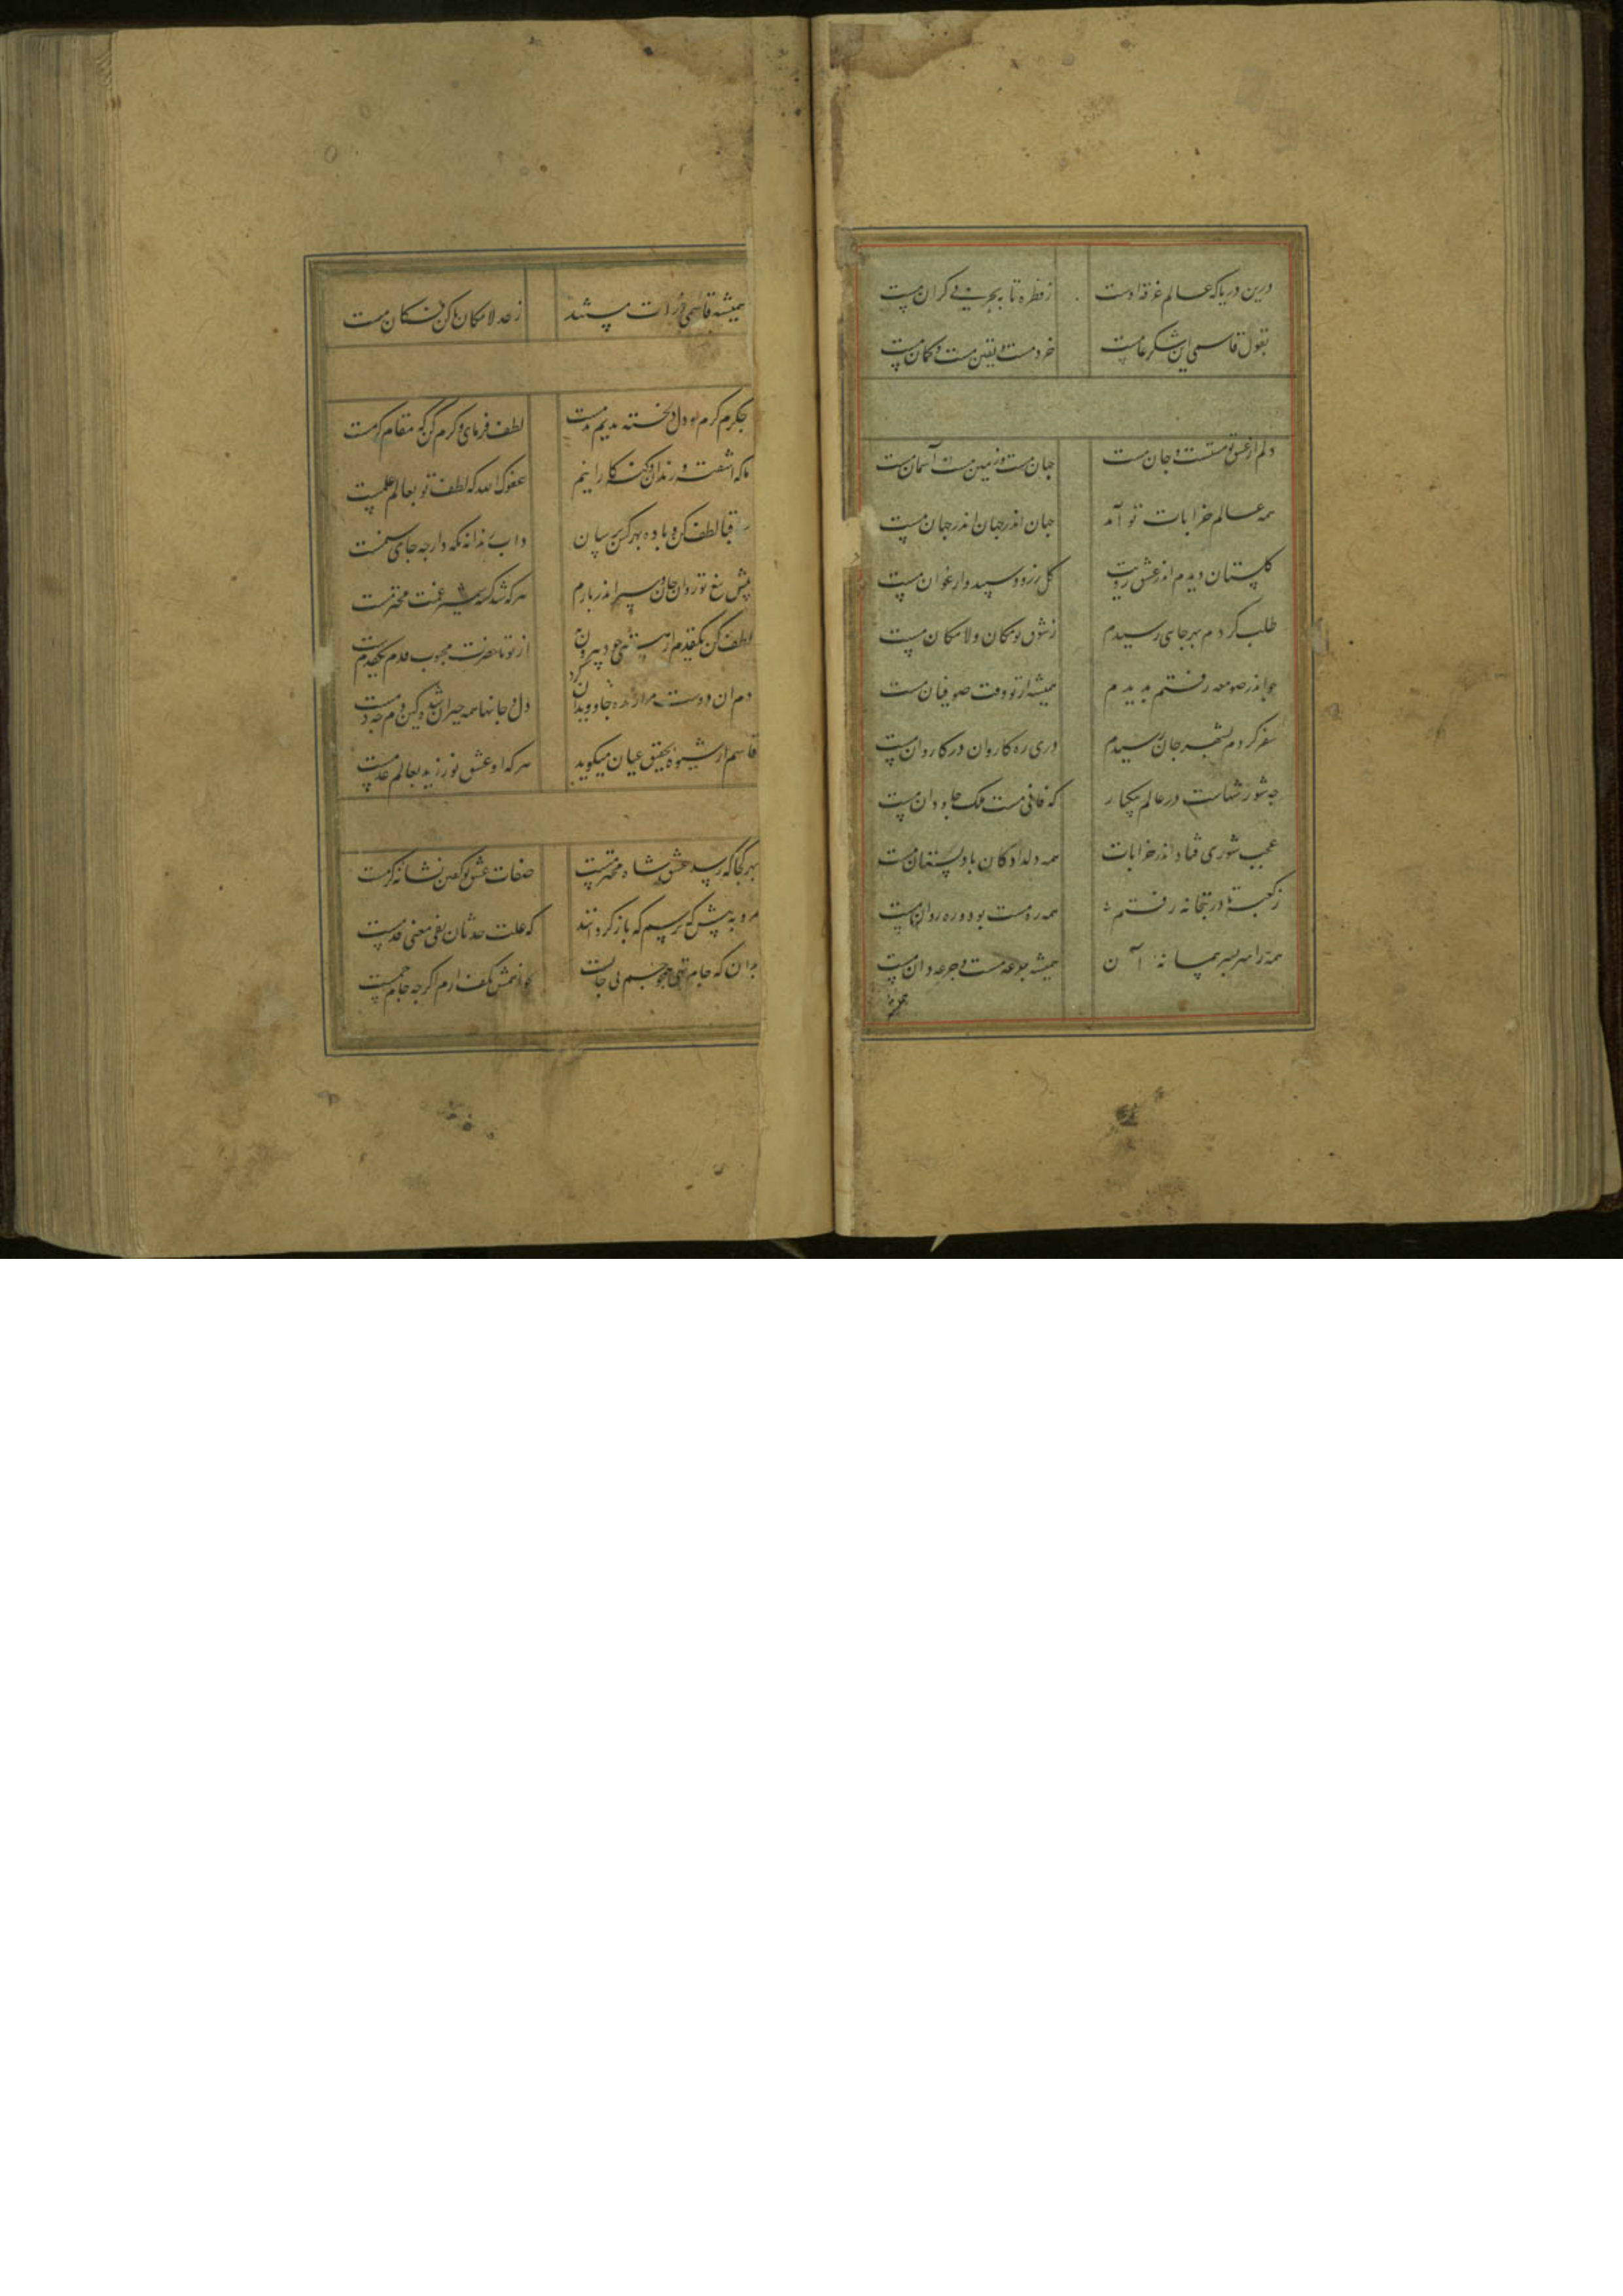 درین دریا که عالم غرقه اوست زقطره تا ببحر بی کران مست
بقول قاسمی این شکر عامست خرد مست و یقین مست و کمان مست
دلم از عشق تو مستست و جان مست جهان مست و زمین مست آسمان مست
همه عالم خرابات تو آمد جهان اندر جهان اندر جهان مست
کلستان دیدم از عشق رویت کل زرد و سپید و ارغوان مست
طلب کردم بهر جای رسیدم زشوق تو مکان و لامکان مست
جو اندر صومعه رفتم بدیدم همیشه از تو وقت صوفیان مست
سفر کردم بشهر جان رسیدم دری ره کاروان در کاروان مست
جه شورشهاست در عالم بیکبار که فانی مست ملک جاودان مست
عجب شوری فتاد اندر خرابات همه دلدادکان با دلستان مست
زکعبه تا در بتخانه رفتم همه ره مست بود و ره روان مست
همه را سر بسر پیمانه آن همیشه جرعه مست و جرعه دان مست
همیشه قاسمی ذرات مستند زحد لامکان تا کن فکان مست
جکرم کرم و دل خسته ندیم ندمست لطف فرمای و کرم کن که مقام کرمست
ماکه آشفته و رندان کنه کار اینم عفوک الله که لطف تو بعالم علمست
لطف کن و باده بهر کس برسان داب رندانه نکه دار جه جای
پیش تیغ تو روان جان و سر اندر بازم هرکه شد کشته شمشیر غمت محترمست
لطف کن یکقدم از هستی خود بیرون از تو تا حضرت محبوب قدم یکقدمست
دم آن دوست مرا زنده جاویدان کرد دل و جانها همه حیران شده کین دم جه دمست
قاسم از شیوه تحقیق عیان میکوید هرکه او عشق نورزید بعالم عدمست
بهر کجا که رسد عشق شاه محترمست صفات عشق تو کفتن نشانه کرمست
مرو به پیش کریم که باز کردانند که علت حدثان نفی معنی قدمست
بران که جام تهی جو جسم بی جانست جو از کف آرم اکرجه جام جمست